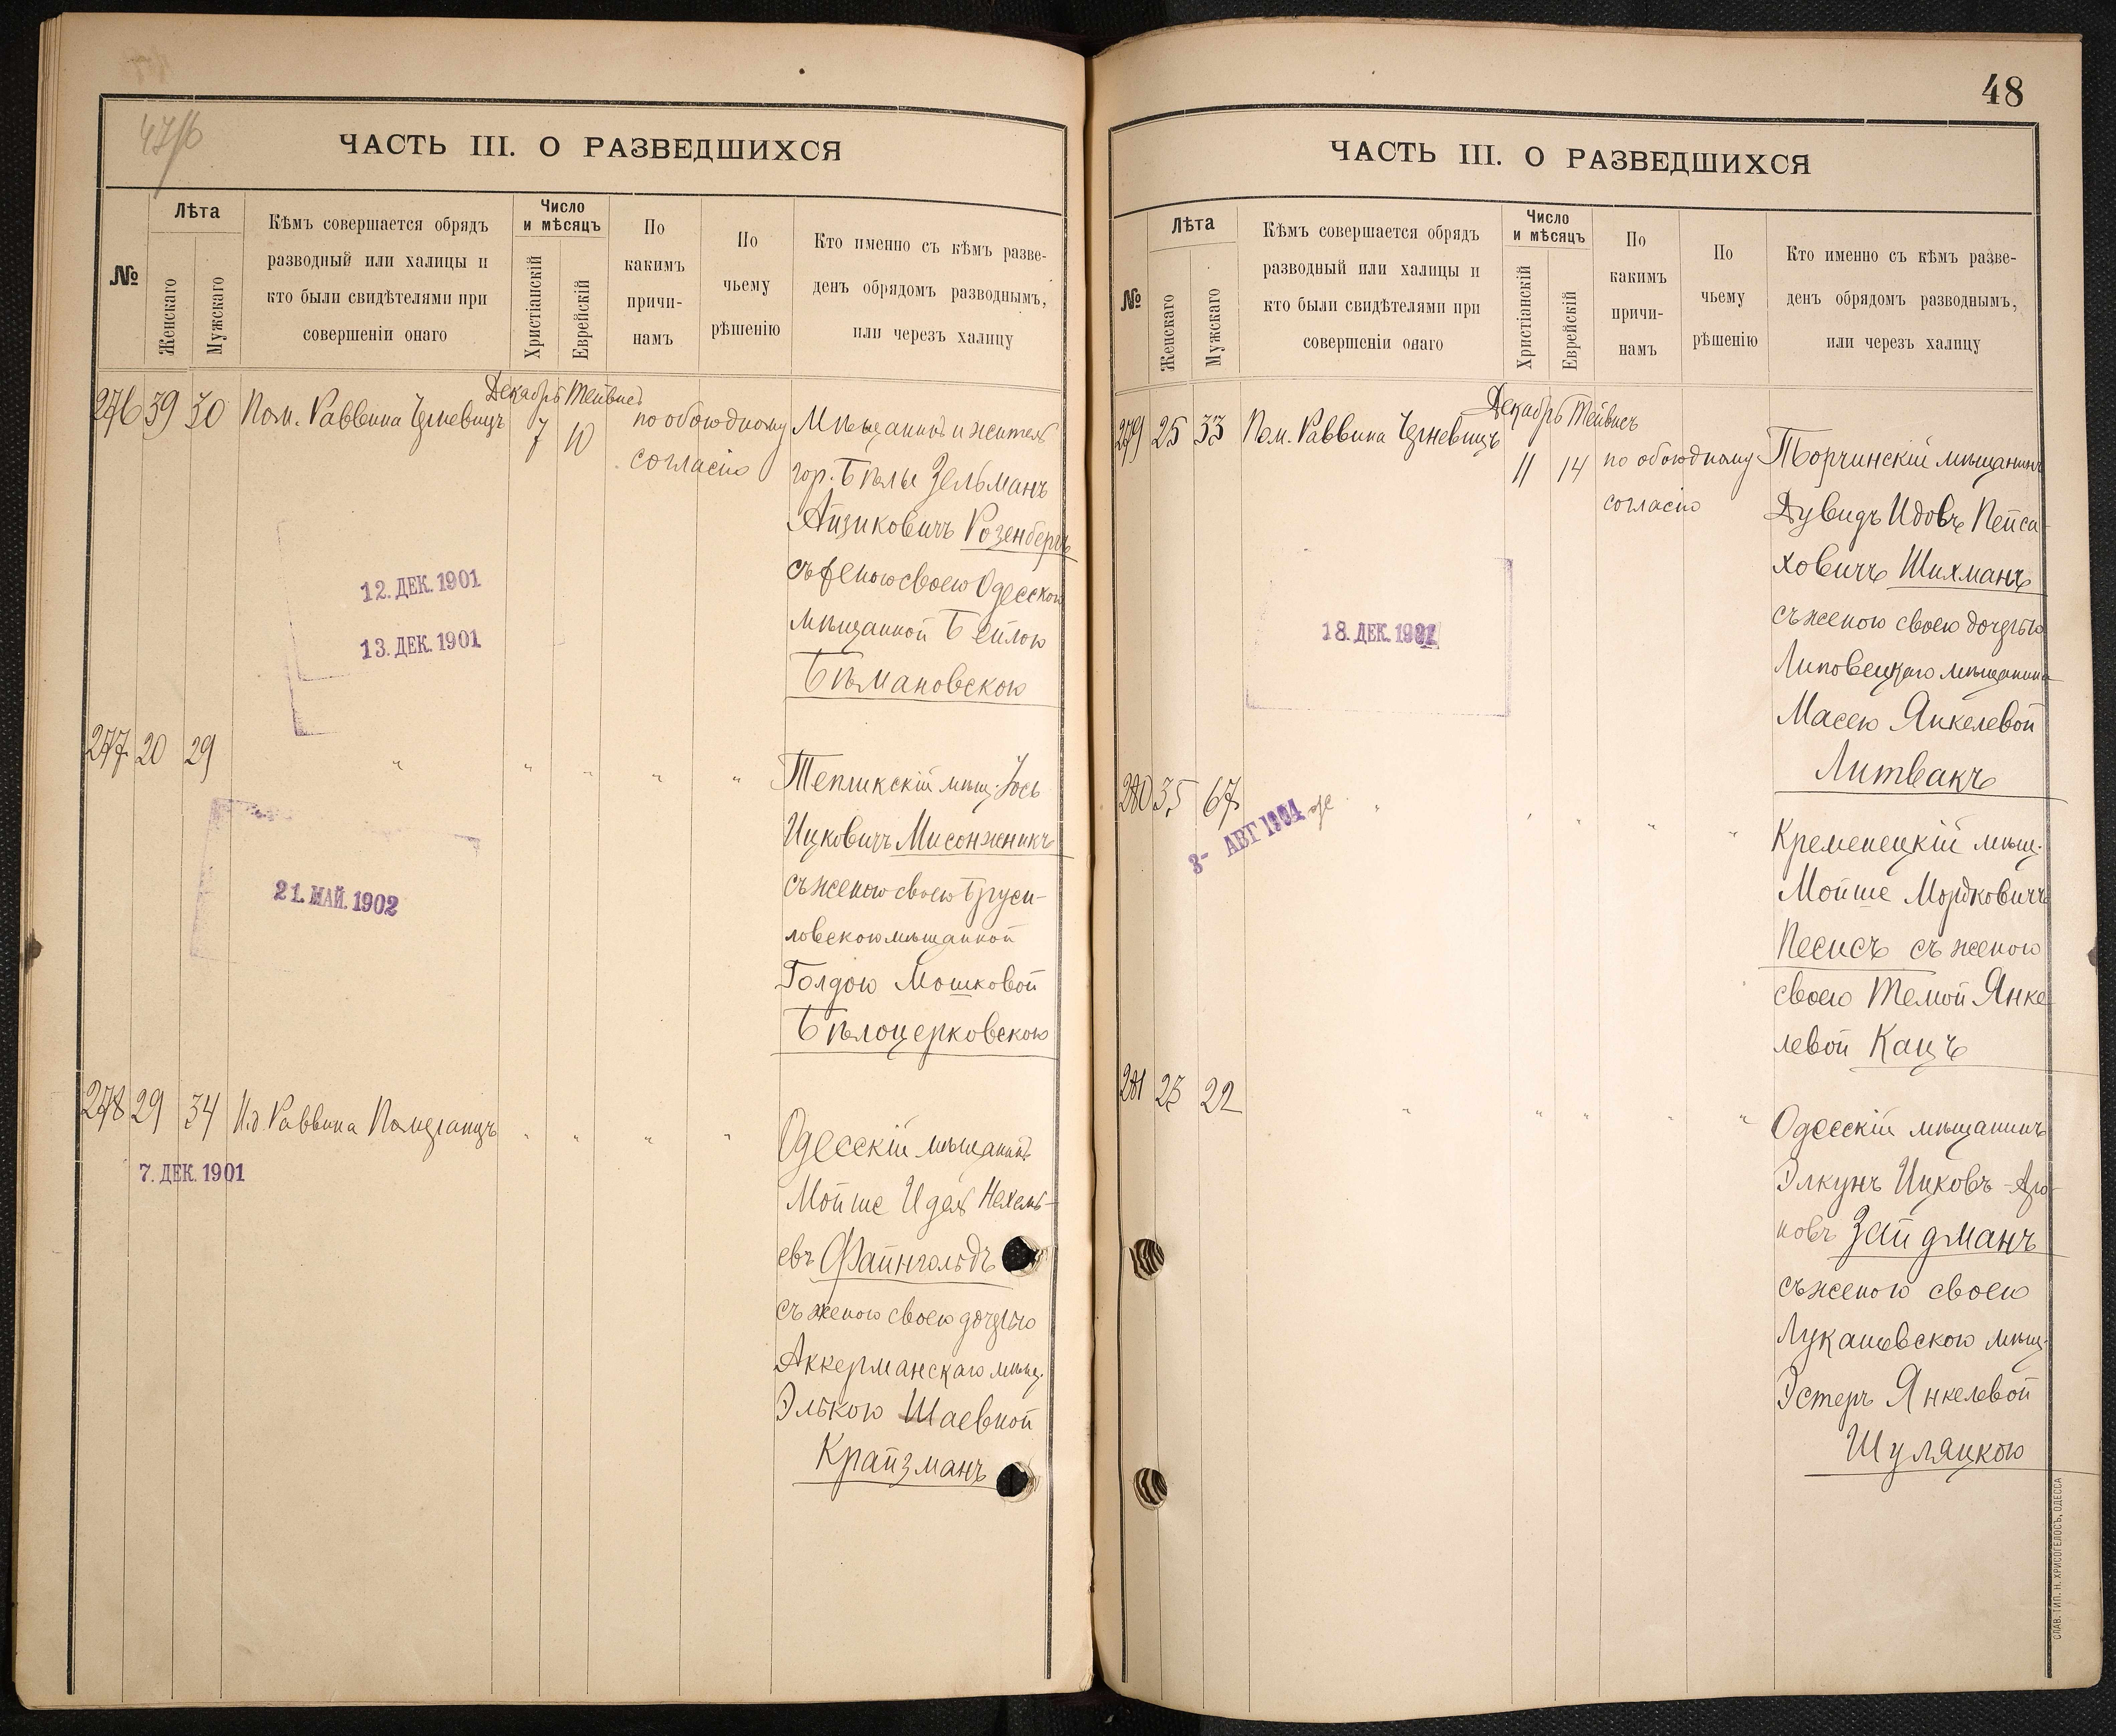 47/б
ЧАСТЬ III. О РАЗВЕДШИХСЯ
№
Лѣта
Женскаго
Мужскаго
Кѣмъ совершается обрядъ
разводный или халицы и
кто были свидѣтелями при
совершеніи онаго
Число
и мѣсяцъ
Христіанскій
Еврейскій
По
какимъ
причи-
намъ
По
чьему
рѣшенію
Кто именно съ кѣмъ разве-
денъ обрядомъ разводнымъ,
или черезъ халицу
Декабрь Тейвисъ
276 39 30 Пом. Раввина 7 10 по обоюдному
согласію
Мѣщанинъ и житель
гор. Бѣлы Зельманъ
Айзиковичъ Розенбергъ
съ женою своею Одесскою
мѣщанкой Бейлою
Бѣмановскою
12. ДЕК. 1901
13. ДЕК. 1901
277 20 29 " " " " "
Тепликскій мѣщ. Іось
Ицковичъ Мисонжникъ
съ женою своею Бруси-
ловскою мѣщанкой
Голдою Мошковой
Бѣлоцерковскою
21. МАЙ. 1902
278 29 34 И.д. Раввина Померанцъ " " " "
Одесскій мѣщанинъ
Мойше Идель Нехемь-
евъ Файнгольдъ
съ женою своею дочерью
Аккерманскаго мѣщ.
Элькою Шаевной
Крайзманъ
7. ДЕК. 1901
48
ЧАСТЬ III. О РАЗВЕДШИХСЯ
№
Лѣта
Женскаго
Мужскаго
Кѣмъ совершается обрядъ
разводный или халицы и
кто были свидѣтелями при
совершеніи онаго
Число
и мѣсяцъ
Христіанскій
Еврейскій
По
какимъ
причи-
намъ
По
чьему
рѣшенію
Кто именно съ кѣмъ разве-
денъ обрядомъ разводнымъ,
или черезъ халицу
Декабрь Тейвисъ
279 25 33 Пом. Раввина 11 14 по обоюдному
согласію
Торчинскій мѣщанинъ
Дувидъ Идовъ Пейса-
ховичъ Шихманъ
съ женою своею дочерью
Липовецкаго мѣщанина
Масею Янкелевой
Литвакъ
18. ДЕК. 1901
280 35 67 " " " " "
3- АВГ 1904
Кременецкій мѣщ.
Мойше Мордковичъ
Песисъ съ женою
своею Темой Янке-
левой Кацъ
281 23 22 " " " " "
Одесскій мѣщанинъ
Элкунъ Ицковъ-Аро-
новъ Зайдманъ
съ женою своею
Лукашевскою мѣщ.
Эстеръ Янкелевой
Шуляцкою
СЛАВ. ТИП. Н. ХРИСОГЕЛОСЪ, ОДЕССА